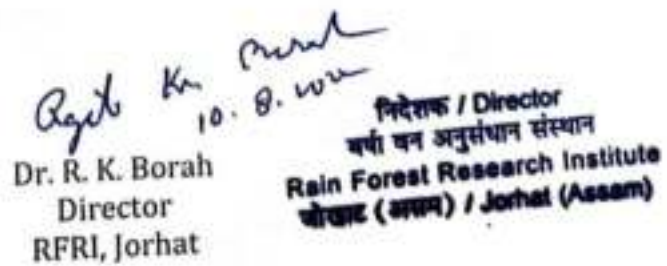 Km Borah
10.8.
Dr. R. K. Borah
Director
RFRI, Jorhat
निदेशक / Director
वर्षा वन अनुसंधान संस्थान
Rain Forest Research Institute
जोरहाट (असम) / Jorhat (Assam)